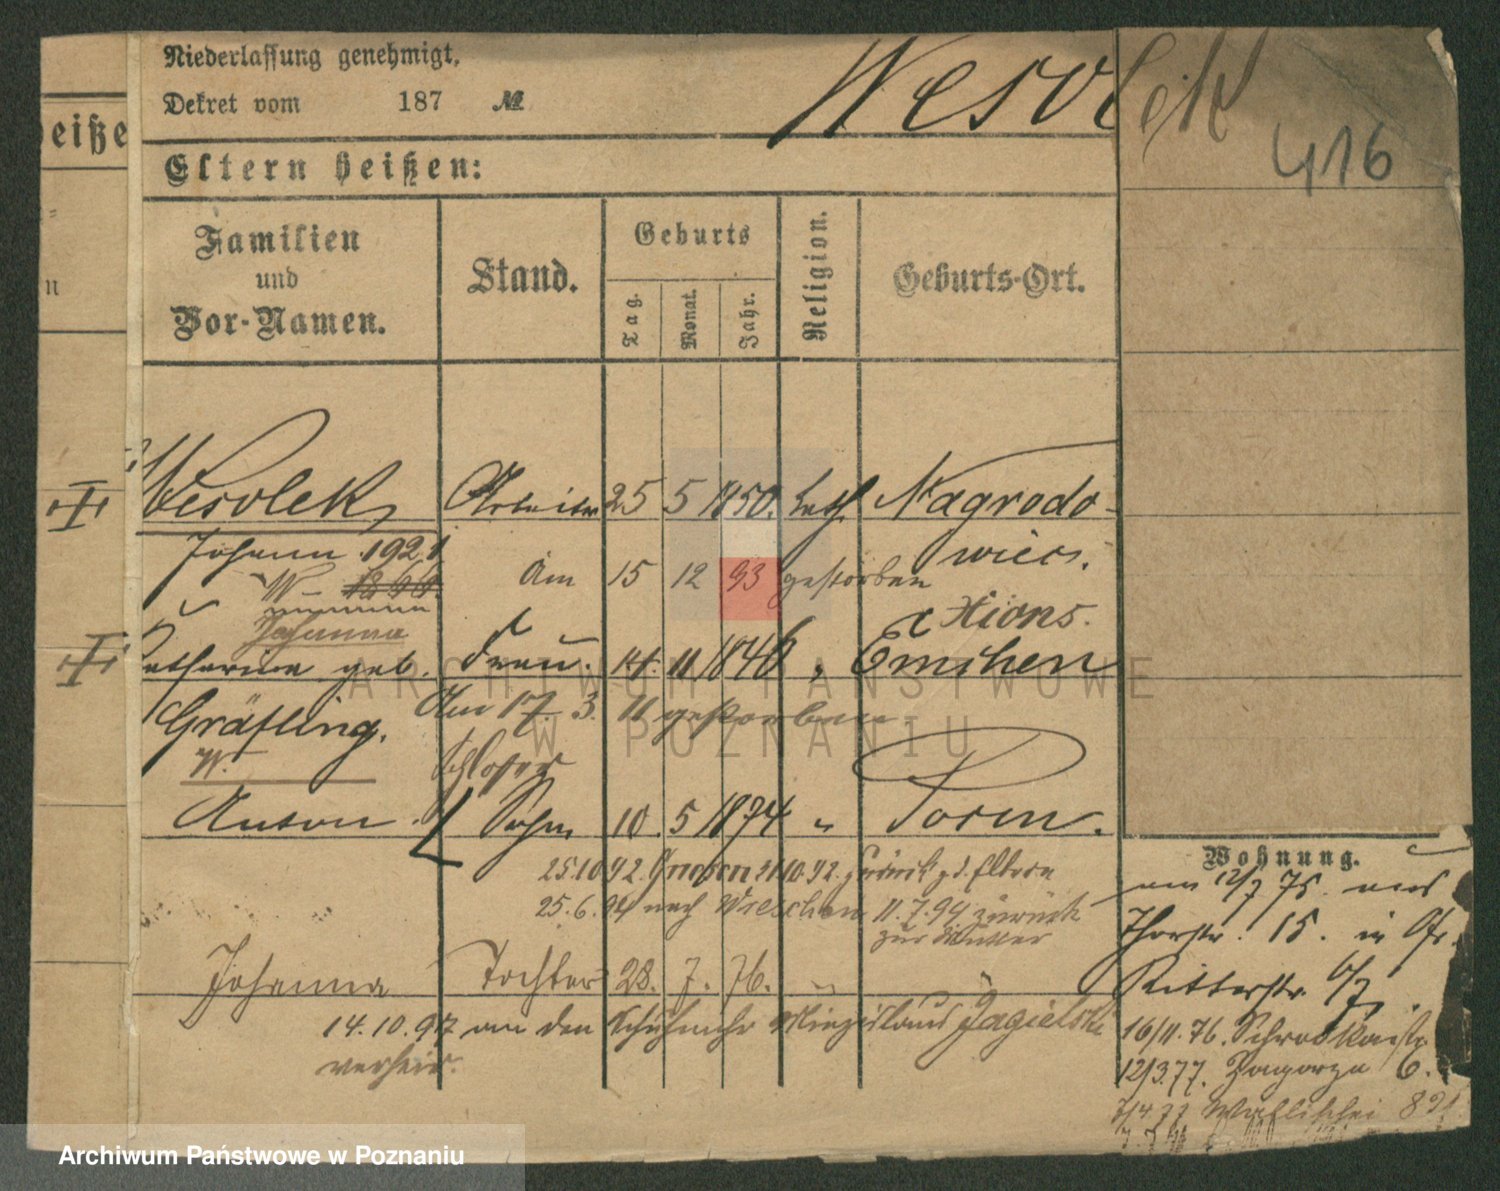 Niederlassung genehmigt.
Dekret vom 187 №
Wesolek
416
eiße
Eltern heißen:
n
Familien
und
Vor-Namen.
Stand.
Geburts
Tag.
Monat.
Jahr.
Religion.
Geburts-Ort.
Wesolek, Arbeiter 25 5 1850. kath. Nagrodo-
wice.
Johann 1921
Am 15 12 93 gestorben
W
Johanna
Xions.
Catharina geb. Frau. 14. 11. 1846 " Emchen
Gräfling. Am 17. 3. 11 gestorben.
W.
Schlosser
Anton. Sohn 10. 5 1874 " Posen.
25.10 92. Gnesen 31.10.92. zurück z. d. Eltern
25. 6. 94 nach Wreschen 11. 7. 94 zurück
zur Mutter
Johanna Tochter 28. 7. 76. "
14. 10. 97 an den Schuhmchr Miezislaus Jagielski
verheir.
Wohnung.
am 12/7 75. aus
Thorstr. 15. in Gr.
Ritterstr. 6/7.
16/11. 76. Schrodkastr
12/3 77. Zagorze 6.
7/4 77 Wallischei
ARCHIWUM PAŃSTWOWE
W POZNANIU
Archiwum Państwowe w Poznaniu